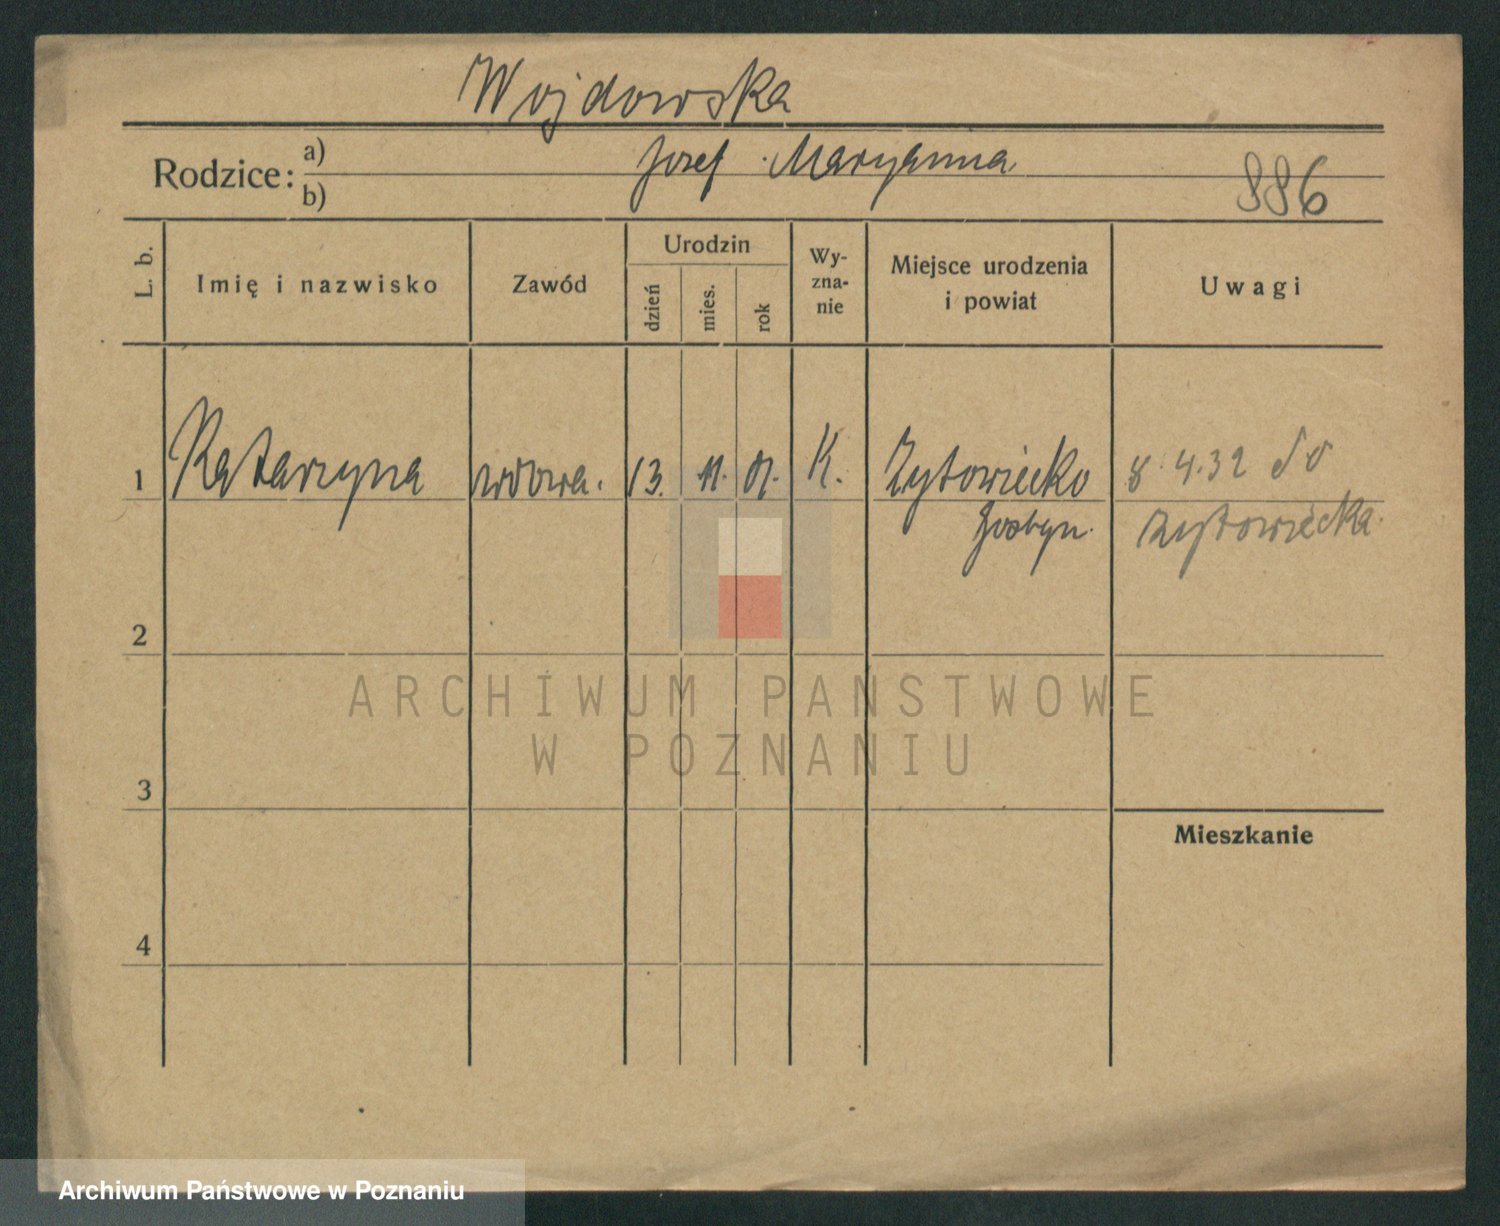 Wojdowska
Rodzice: a) Josef Maryanna
b)
886
L. b.
Imię i nazwisko
Zawód
Urodzin
dzień
mies.
rok
Wy-
zna-
nie
Miejsce urodzenia
i powiat
Uwagi
1 Katarzyna wdowa. 13. 11. 01. K. Zytowiecko 8 4.32 do
Gostyn. Zytowiecka
2
3
Mieszkanie
4
ARCHIWUM PAŃSTWOWE
W POZNANIU
Archiwum Państwowe w Poznaniu